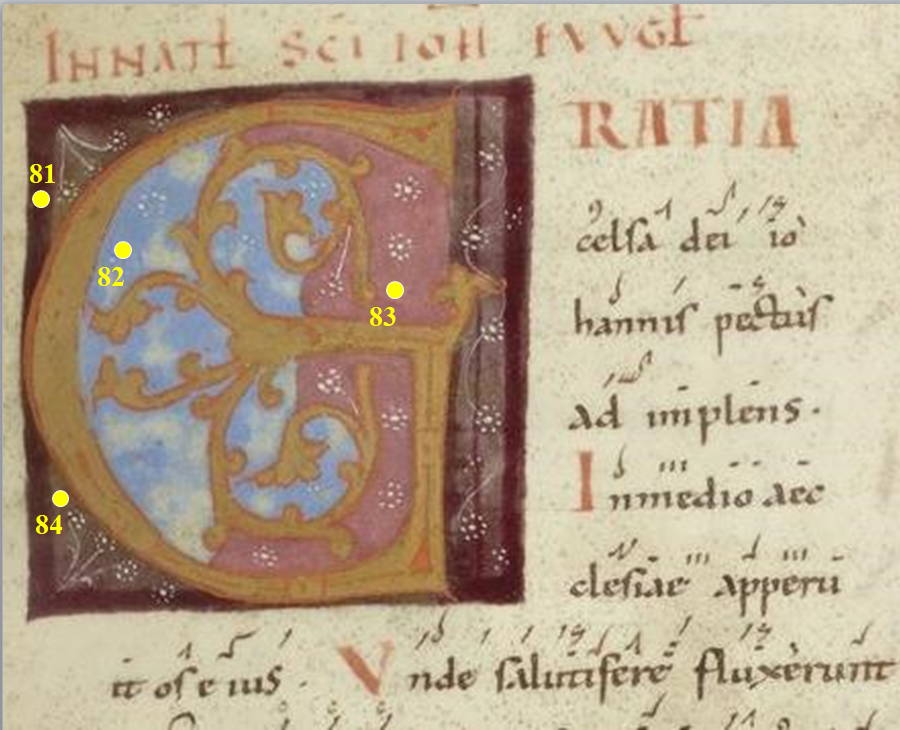 INNATƚ SCI IOH EVVGƚ
RATIA
celsa dei iò
hannis pectus
ad implens.
Inmedio aec
clesiae apperu
it os eius. Vnde salutiferę fluxèrunt
81
82
83
84